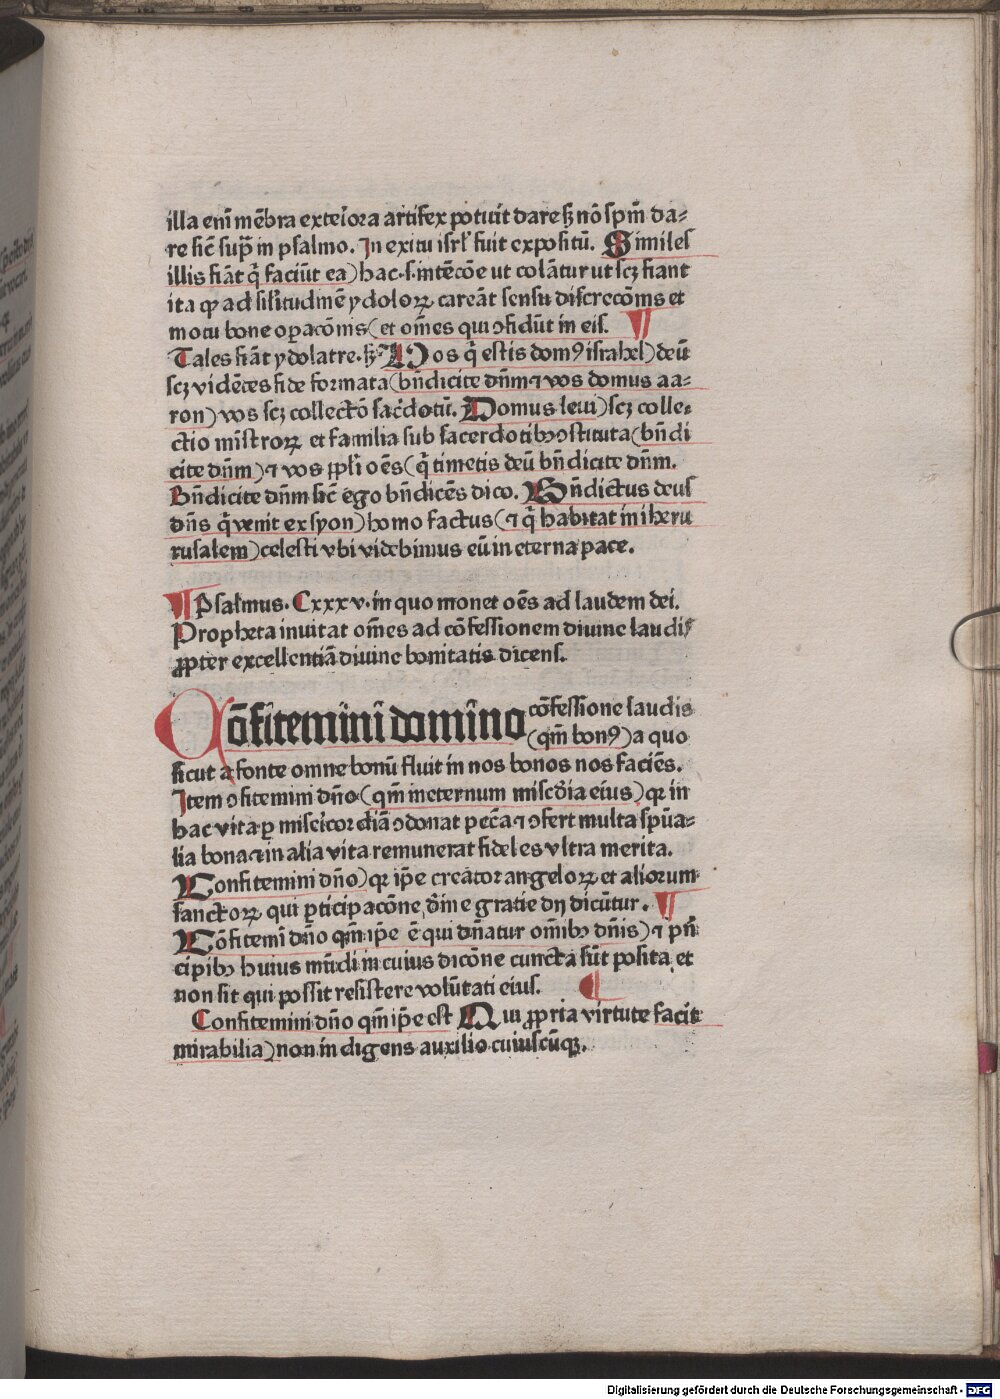 illa em̄ mēbra exteriora artifex potuit dare sʒ nō spm̄ da⸗
re sic̄ supͣ in psalmo. In exitu isrl' fuit expositū. Similes
illis fiāt q̄ faciūt ea) hac .s. intēcōe ut colātur ut scʒ fiant
ita ꝙ ad sil'itudinē ydoloꝝ careāt sensu discrecōnis et
motu bone oꝑacōnis (et om̄es qui ɔfidūt in eis. ¶
Tales fiāt ydolatre. sʒ Vos q̄ estis domꝰ israhel) deū
scʒ vidētes fide formata (bn̄dicite dn̄m ⁊ vos domus aa⸗
ron) vos scʒ collectō sac̄dotū. Domus leui) scʒ colle⸗
ctio mīstroꝝ et familia sub sacerdotibꝫ ɔstituta (bn̄di
cite dn̄m) ⁊ vos ppl'i oēs (q̄ timetis deū bn̄dicite dn̄m.
Bn̄dicite dn̄m sic̄ ego bn̄dicēs dico. Bn̄dictus deus
dn̄s q̄ venit ex syon) homo factus (⁊ q̄ habitat in iheru
rusalem) celesti vbi videbimus eū in eterna pace.
¶ Psalmus. Cxxxv. in quo monet oēs ad laudem dei.
Propheta inuitat om̄es ad cōfessionem diuine laudis
ꝓpter excellentiā diuine bonitatis dicens.
Cōfitemini domino cōfessione laudis
(qm̄ bonꝰ) a quo
sicut a fonte omne bonū fluit in nos bonos nos faciēs.
Item ɔfitemini dn̄o (qm̄ in eternum miscd̄ia eius) qꝛ in
hac vita ꝑ misericordiā ɔdonat pec̄a ⁊ ɔfert multa spūa⸗
lia bona ⁊ in alia vita remunerat fideles vltra merita.
Confitemini dn̄o) qꝛ ip̄e creator angeloꝝ et aliorum
sanctoꝝ qui ꝑticipacōne d̄ine gratie dij dicūtur. ¶
Cōfitemī dn̄o qm̄ ip̄e ē qui dn̄atur om̄ibꝫ dn̄is) ⁊ pn̄
cipibꝫ huius mūdi in cuius dicōne cuncta sūt posita et
non sit qui possit resistere volūtati eius. ¶
Confitemini dn̄o qm̄ ip̄e est Qui ꝓpria virtute facit
mirabilia) non indigens auxilio cuiuscūqꝫ.
Digitalisierung gefördert durch die Deutsche Forschungsgemeinschaft - DFG